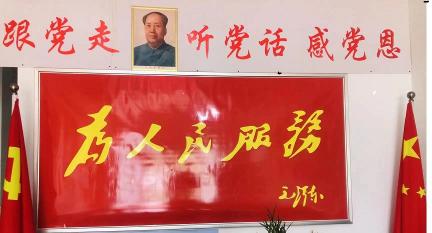 跟党走 听党话 感党恩
为人民服務
毛泽东